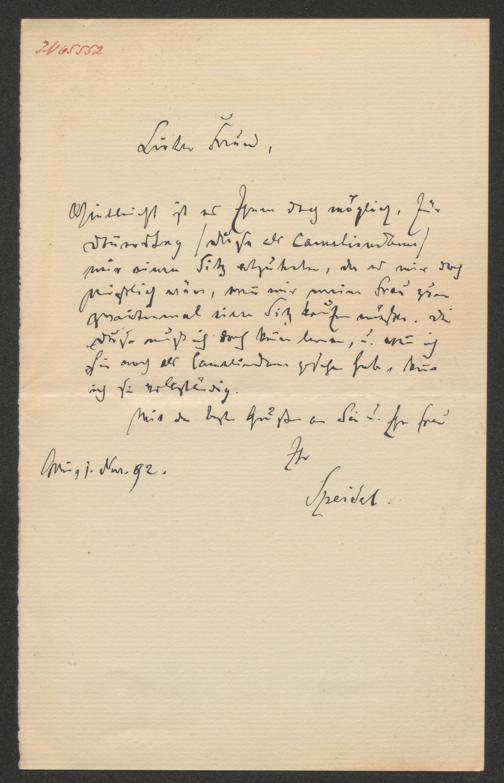 Lieber Freund,
Vielleicht ist es Ihnen doch möglich, für
Donnerstag (Duse als Cameliendame)
mir einen Sitz abzutreten, da es mir doch
peinlich wäre, wenn mir meine Frau zum
zweitenmal einen Sitz kaufen müßte. Die
Duse muß ich doch kennen lernen, u. wenn ich
sie noch als Cameliendame gesehen habe, kenne
ich sie vollständig.
Mit den besten Grüßen an Sie u. Ihre Frau
Ihr
Wien, 1. Nov. 92.
Speidel.